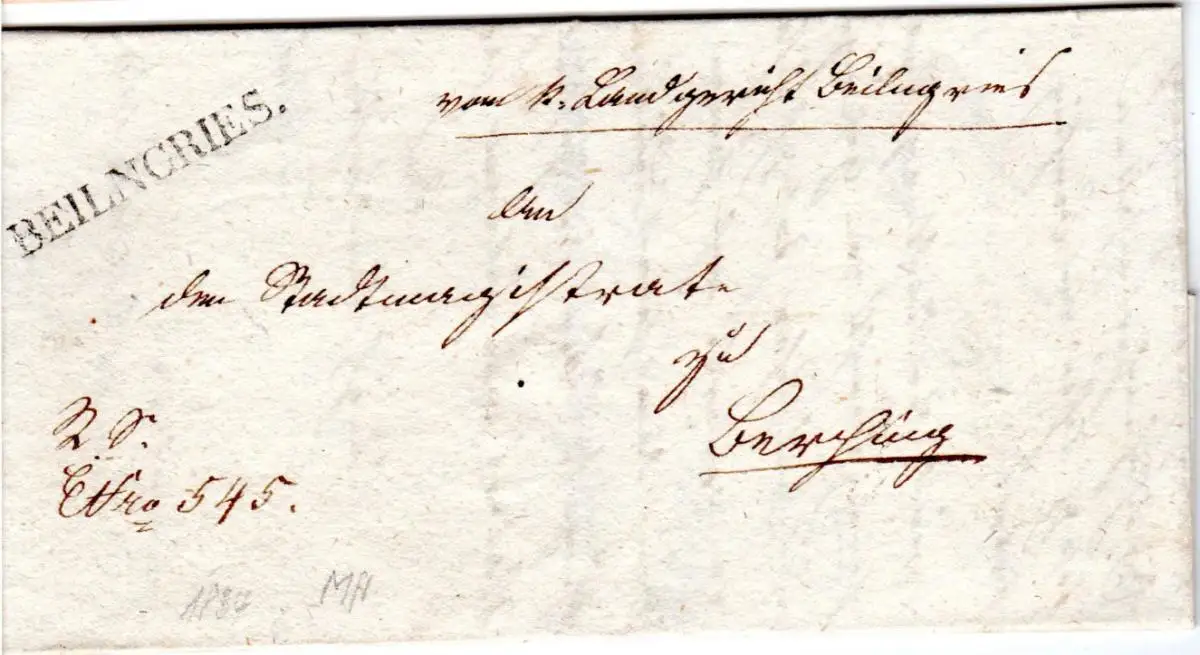 BEILNGRIES.
vom k. Landgericht Beilngries
An
den Stadtmagistrate
zu
Berching
R. S.
ENro 545.